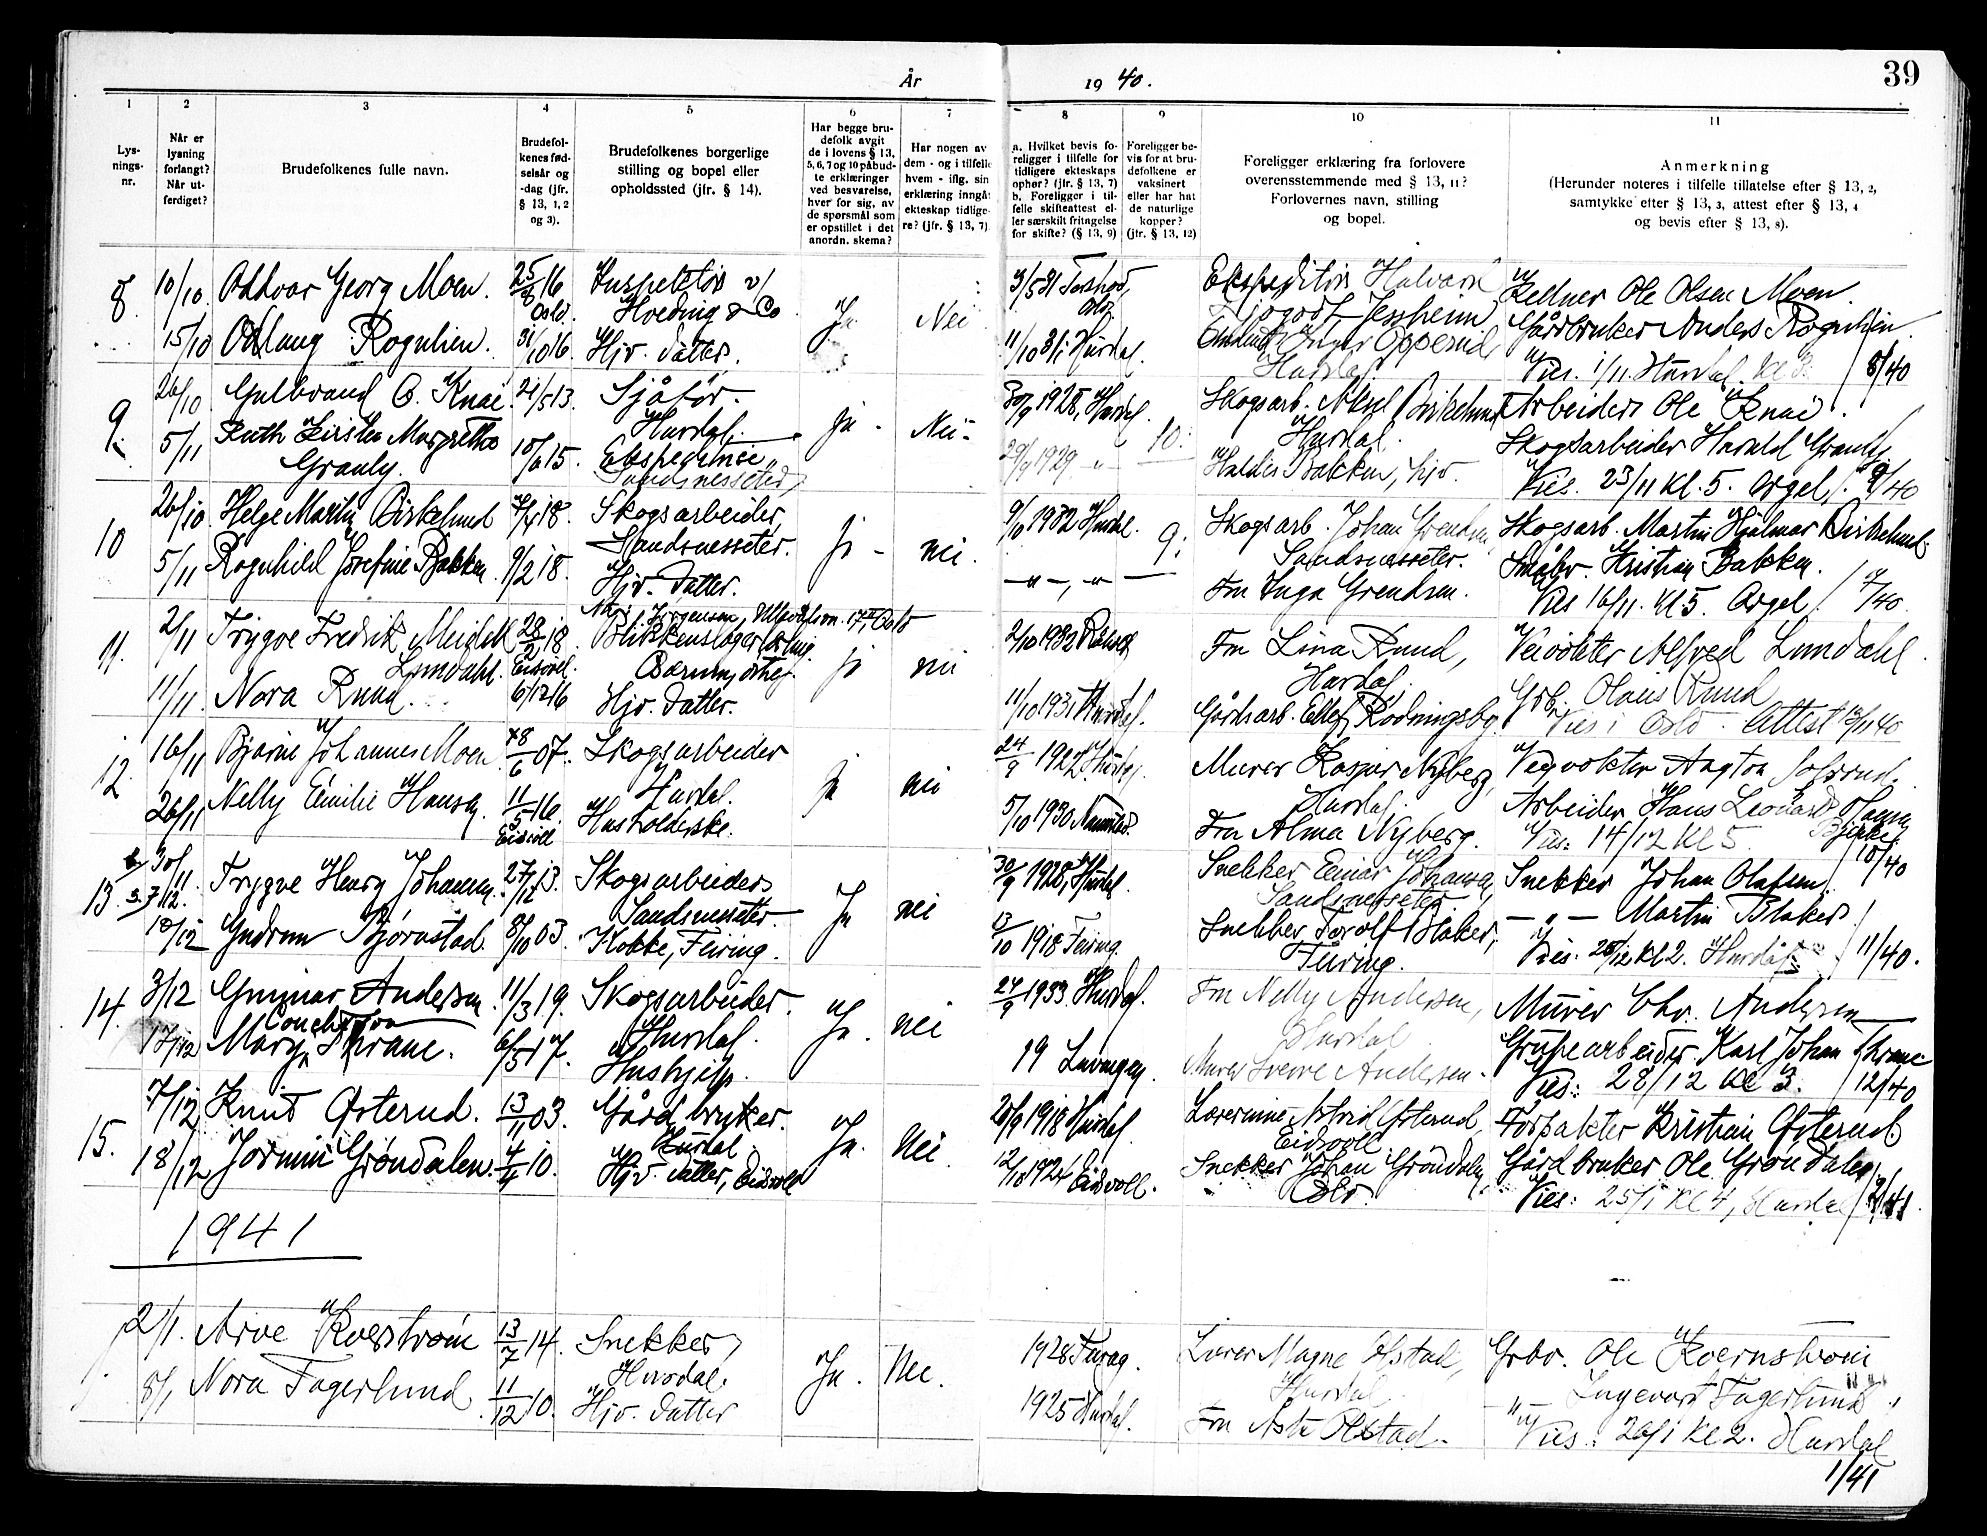 39
År 19 40.
1 2 3 4 5 6 7 8 9 10 11
Lysnings-nr.
Når er lysning forlangt? Når utferdiget?
Brudefolkenes fulle navn.
Brudefolkenes fødselsår og -dag (jfr. § 13, 1, 2 og 3).
Brudefolkenes borgerlige stilling og bopel eller opholdssted (jfr. § 14).
Har begge brudefolk avgit de i lovens § 13, 5, 6, 7 og 10 påbudte erklæringer ved besvarelse, hver for sig, av de spørsmål som er opstillet i det anordn. skema?
Har nogen av dem - og i tilfelle hvem - iflg. sin erklæring inngått ekteskap tidligere? (jfr. § 13, 7)
a. Hvilket bevis foreligger i tilfelle for tidligere ekteskaps ophør? (jfr. § 13, 7) b. Foreligger i tilfelle skifteattest eller særskilt fritagelse for skifte? (§ 13, 9)
Foreligger bevis for at brudefolkene er vaksinert eller har hat de naturlige kopper? (jfr. § 13, 12)
Foreligger erklæring fra forlovere overensstemmende med § 13, 11? Forlovernes navn, stilling og bopel.
Anmerkning (Herunder noteres i tilfelle tillatelse efter § 13, 2, samtykke efter § 13, 3, attest efter § 13, 4 og bevis efter § 13, 8).
8 10/10 Oddvar Georg Moen. 25/8 16 Oslo. Inspektør v/ Hoeding & Co Ja Nei Ekspeditør Halvard Jessheim Kellner Ole Olsen Moen.
15/10 Odlaug Rognlien. 31/10 16 Hjv. datter. 11/10 31 Hurdal. Inger Opperud, Hurdal Gårdbruker Anders Rognlien
Vies. 1/11. Hurdal. Kl 3. 8/40
9. 26/10 Gulbrand O. Knai 21/5 13. Sjåfør. Hurdal. Ja - Nei - 1928, Hurdal. 10: Skogsarb. Aksel Birkelund Hurdal. Arbeider Ole Knai.
5/11 Ruth Kirsten Margrethe Granly. 15. Ekspeditrice, Sandsnesseter, 1929 - " - Haldis Bakken, hjv. Skogsarbeider Harald Granly
Vies. 23/11 kl. 5. Orgel. 9/40
10 26/10 Helge Martin Birkelund 18. Skogsarbeider, Sandsnesseter. Ja - nei. 1932 Hurdal. 9: Skogsarb. Johan Grendsen, Sandsnesseter. Skogsarb. Martin Hjalmar Birkelund.
5/11 Ragnhild Josefine Bakken 9/2 18. Hjv. datter. - " -, " - Fru Inga Grendsen. Småbr. Kristian Bakken.
Vies 16/11. Kl 5. Orgel 7/40
11. 2/11 Trygve Fredrik Meidell Lundahl. 28/2 18. Eidsvoll. Jørgensen, Ullevålsvn. 17 Oslo Blikkenslager Ja nei 2/10 1932 Fru Lina Ruud, Hurdal. Veivokter Alfred Lundahl.
11/11 Nora Ruud 6/12 16 Hjv. datter. 11/10 1931 Hurdal. Gårdsarb. Ellef Rødningsby. Grbr. Olaus Ruud
Vies i Oslo - Attest 12/11 40
12 16/11 Bjarne Johannes Moen 6 07. Skogsarbeider Hurdal. Ja nei 24/9 1922 Hurdal. Murer Kaspar Nyberg, Hurdal. Veivokter Anton
26/11 Nelly Emilie Hansen 11/5 16. Eidsvoll Husholderske. 5/10 1930 Fru Alma Nyberg. Arbeider Hans Leonard Hansen
Vies: 14/12 Kl 5. 10/40
13. 30/11. 7/12. Trygve Henry Johansen. 27/12 13. Skogsarbeider Sandsnesseter Ja nei 30/9 1928, Hurdal. Snekker Einar Johansen, Sandsnesseter Snekker Johan Olafsen
10/12 Gudrun Bjørnstad. 8/10 03. Kokke, Feiring. 13/10 1918 Feiring. Snekker Torolf Blaker, Feiring. - " - Martin Blaker
Vies: 26/12 Kl 2. Hurdal 11/40.
14. 3/12 Gunnar Andersen 11/3 19. Skogsarbeider. Hurdal. Ja. nei 24/9 1933. Hurdal. Fru Nelly Andersen, Hurdal Murer Chr. Andersen
17/12 Mary Thrane. 6/5 17. Hushjelp. 19 Murer Sverre Andersen. Grubearbeider. Karl Johan Thrane
Vies: 28/12 Kl 3. 12/40
15. 7/12 Knut Østerud. 13/11 03. Gårdbruker. Hurdal Ja. Nei. 1918 Hurdal Lærerinne Astrid Østerud, Eidsvoll Forpakter Kristian Østerud
18/12 Jørmin Grøndalen. 4/4 10. Hjv. datter, Eidsvoll 12/10 1924 Eidsvoll. Snekker Johan Grøndalen, Oslo. Gårdbruker Ole Grøndalen
Vies: 25/1 Kl 4, Hurdal 2/41.
1941
1. 2/1. Arve Kverstrøm 13/7 14. Snekker, Hurdal. Ja. Nei. 1928 Lærer Magne Olstad, Hurdal Grbr. Ole Kvernstrøm
8/1 Nora Fagerlund 11/12 10. Hjv. datter 1925 Hurdal. Fru Olstad. - " - Ingevart Fagerlund
Vies: 26/1 Kl 2. Hurdal
1/41